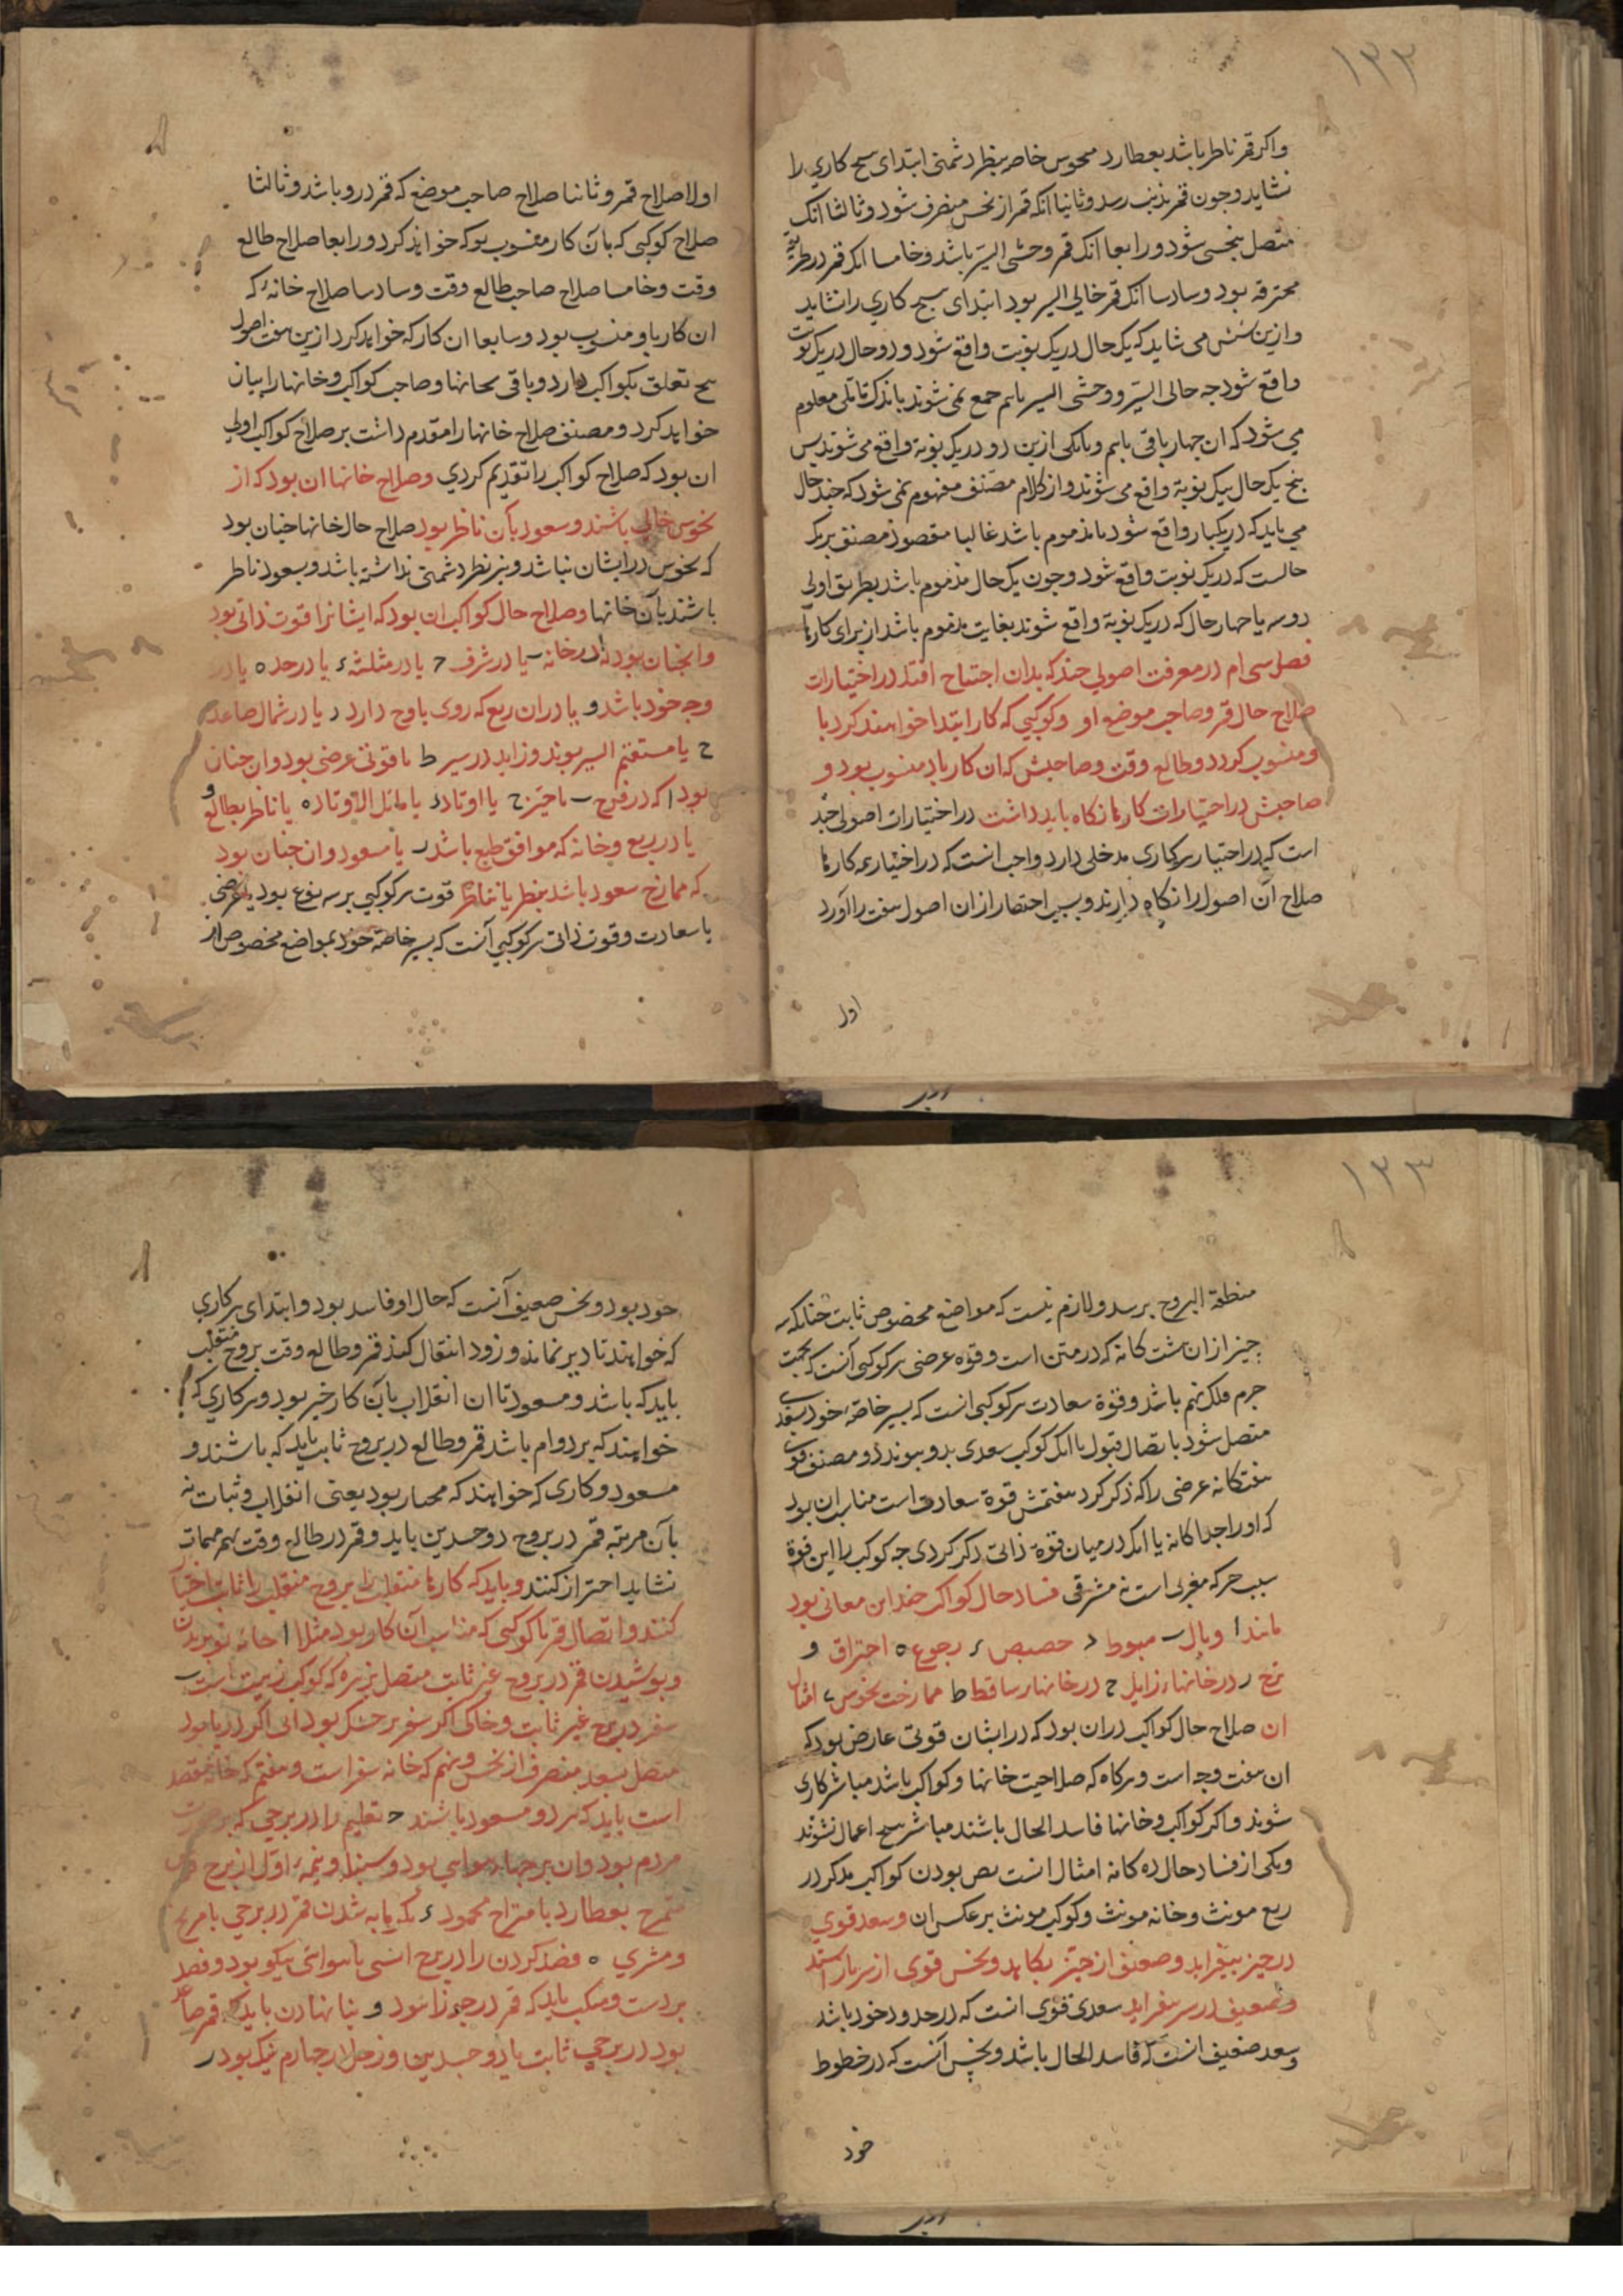 ۱۳۲
واکر قمر ناظر باشد بعطارد منحوس خاصه بنظر دشمنی ابتدای هیچ کاری را
نشاید وجون قمر بذنب رسد وثانیا انکه قمر از نحس منصرف شود وثالثا انک
متصل بنحسی شود ورابعا انک قمر وحشی السیر باشد وخامسا انک قمر در طریقه
محترقه بود وسادسا انک قمر خالی السیر بود ابتدای هیچ کاری را نشاید
وازین شش می شاید که یک حال در یک نوبت واقع شود ودو حال در یک نوبت
واقع شود جه خالی السیر ووحشی السیر باهم جمع نمی شوند باندک تاملی معلوم
می شود که ان جهار باقی باهم وبایکی ازین دو در یک نوبة واقع می شوند بس
بنج یک حال بیک نوبة واقع می شوند واز کلام مصنف مفهوم نمی شود که جند حال
می باید که در یکبار واقع شود تا مذموم باشد غالبا مقصود مصنف هریک
حالست که در یک نوبت واقع شود وجون یک حال مذموم باشد بطریق اولی
دو سه یا جهار حال که در یک نوبة واقع شوند بغایت مذموم باشد از برای کارها
فصل سی ام در معرفت اصولی جند که بدان احتیاج افتد در اختیارات
صلاح حال قمر وصاحب موضع او وکوکبی که کار ابتدا خواهند کرد با
ومنسوب کردد وطالع وقت وصاحبش که ان کار بدو منسوب بود و
صاحبش در اختیارات کارها نکاه باید داشت در اختیارات اصولی جند
است که در اختیار هر کاری مدخلی دارد واجب انست که در اختیار همه کارها
صلاح آن اصول را نکاه دارند وبسبب اختصار از ان اصول هفت را آورد
اول
اولا صلاح قمر وثانیا صلاح صاحب موضع که قمر درو باشد وثالثا
صلاح کوکبی که بان کار منسوب بود که خواهند کرد ورابعا صلاح طالع
وقت وخامسا صلاح صاحب طالع وقت وسادسا صلاح خانهٔ که
ان کار باو منسوب بود وسابعا ان کار که خواهند کرد ازین هفت اصول
بنج تعلق بکواکب دارد وباقی بخانها وصاحب کواکب وخانها را بیان
خواهد کرد ومصنف صلاح خانها را مقدم داشت بر صلاح کواکب اولی
ان بود که صلاح کواکب را تقدیم کردی وصلاح خانها ان بود که از
نحوس خالی باشند وسعود بان ناظر بود صلاح حال خانها جنان بود
که نحوس در ایشان نباشد ونیز نظر دشمنی نداشته باشد وسعود ناظر
باشند بان خانها وصلاح حال کواکب ان بود که ایشانرا قوت ذاتی بود
وانجنان بود که ا در خانه ب یا در شرف ج یا در مثلثه د یا در حد ه یا در
وجه خود باشد و یا در ان ربع که روی باوج دارد ز یا در شمال صاعد
ح یا مستقیم السیر بوند وزاید در سیر ط یا قوتی عرضی بود وان جنان
بود ا که در فرح ب یا حیز ج یا اوتاد د یا مایل الاوتاد ه یا ناظر بطالع و
یا در ربع وخانه که موافق طبع باشد ز یا مسعود وان جنان بود
که ممازج سعود باشد بنظر یا تناظر قوت هر کوکبی بر سه نوع بود یا عرضی
یا سعادت وقوت ذاتی هر کوکبی آنست که بسیر خاصه خود بمواضع مخصوص از
۱۳۳
منطقة البروج برسد ولازم نیست که مواضع مخصوص ثابت جنانکه سه
جیز از ان هشت کانه که در متن است وقوه عرضی هر کوکبی آنست که بجهت
جرم فلک نهم باشد وقوة سعادت هر کوکبی انست که بسیر خاصهٔ خود بسعدی
متصل شود باتصال قبول یا انک کوکب سعدی بدو بیوندد ومصنف قوی
هفتکانه عرضی را که ذکر کرد هفتمش قوة سعادت است مناسب ان بود
که اورا جداکانه یا انک در میان قوة ذاتی ذکر کردی جه کوکب را این قوة
بسبب حرکه مغربی است نه مشرقی فساد حال کواکب ضد این معانی بود
مانند ا وبال ب هبوط ج حضیض د رجوع ه احتراق و
ترح ز در خانهاء زایل ح در خانهاء ساقط ط ممازجت نحوس ی امثال
ان صلاح حال کواکب در ان بود که در ایشان قوتی عارض بود که
ان هفت وجه است وهرکاه که صلاحیت خانها وکواکب باشد مباشر کاری
شوند واکر کواکب وخانها فاسد الحال باشند مباشر هیچ اعمال نشوند
ویکی از فساد حال ده کانه امثال انست بس بودن کواکب مذکر در
ربع مونث وخانه مونث وکوکب مونث بر عکس ان وسعد قوی
در خیر بیفزاید وضعیف از خیر بکاهد ونحس قوی از شر باز استد
وضعیف در شر بیفزاید سعد قوی انست که در حدود خود باشد
وسعد ضعیف انست که فاسد الحال باشد ونحس آنست که در حظوظ
خود
خود بود ونحس ضعیف آنست که حال او فاسد بود وابتدای هر کاری
که خواهند تا دیر نماند وزود انتقال کند قمر وطالع وقت بروج منقلب
باید که باشد ومسعود تا ان انقلاب بان کار خیر بود وهر کاری که
خواهند که بر دوام باشد قمر وطالع در بروج ثابت باید که باشند و
مسعود وکاری که خواهند که مختار بود یعنی انقلاب وثبات نه
بان مرتبه قمر در بروج ذو جسدین باید وقمر در طالع وقت بهم مهمات
نشاید احتراز کنند وباید که کارهاء منقلب را بروج منقلب را ثابت اختیار
کنند واتصال قمر با کوکبی که مناسب آن کار بود مثلا ا جامه نو بریدن
وبوشیدن قمر در بروج غیر ثابت متصل بزهره که کوکب زینت است ب
سفر در برج غیر ثابت وخاکی اکر سفر بر خشک بود آبی اکر دریا بود
متصل بسعد منصرف از نحس ونهم که خانه سفر است وهفتم که خانه مقصد
است باید که هر دو مسعود باشند ج تعلیم را در برجی که بر صورت
مردم بود وان برجهاء هوایی بود وسنبله ونیمهٔ اول از برج قوس
ممتزج بعطارد بامتزاج محمود د بکرمابه شدن قمر در برجی با مریخ
ومشتری ه فصد کردن را در برج اتشی یا هوایی نیکو بود وفصد
بر دست ومنکب باید که قمر در جوزا نبود و بنا نهادن باید که قمر صاعد
بود در برجی ثابت یا ذو جسدین وزحل در جهارم نیک بود ز